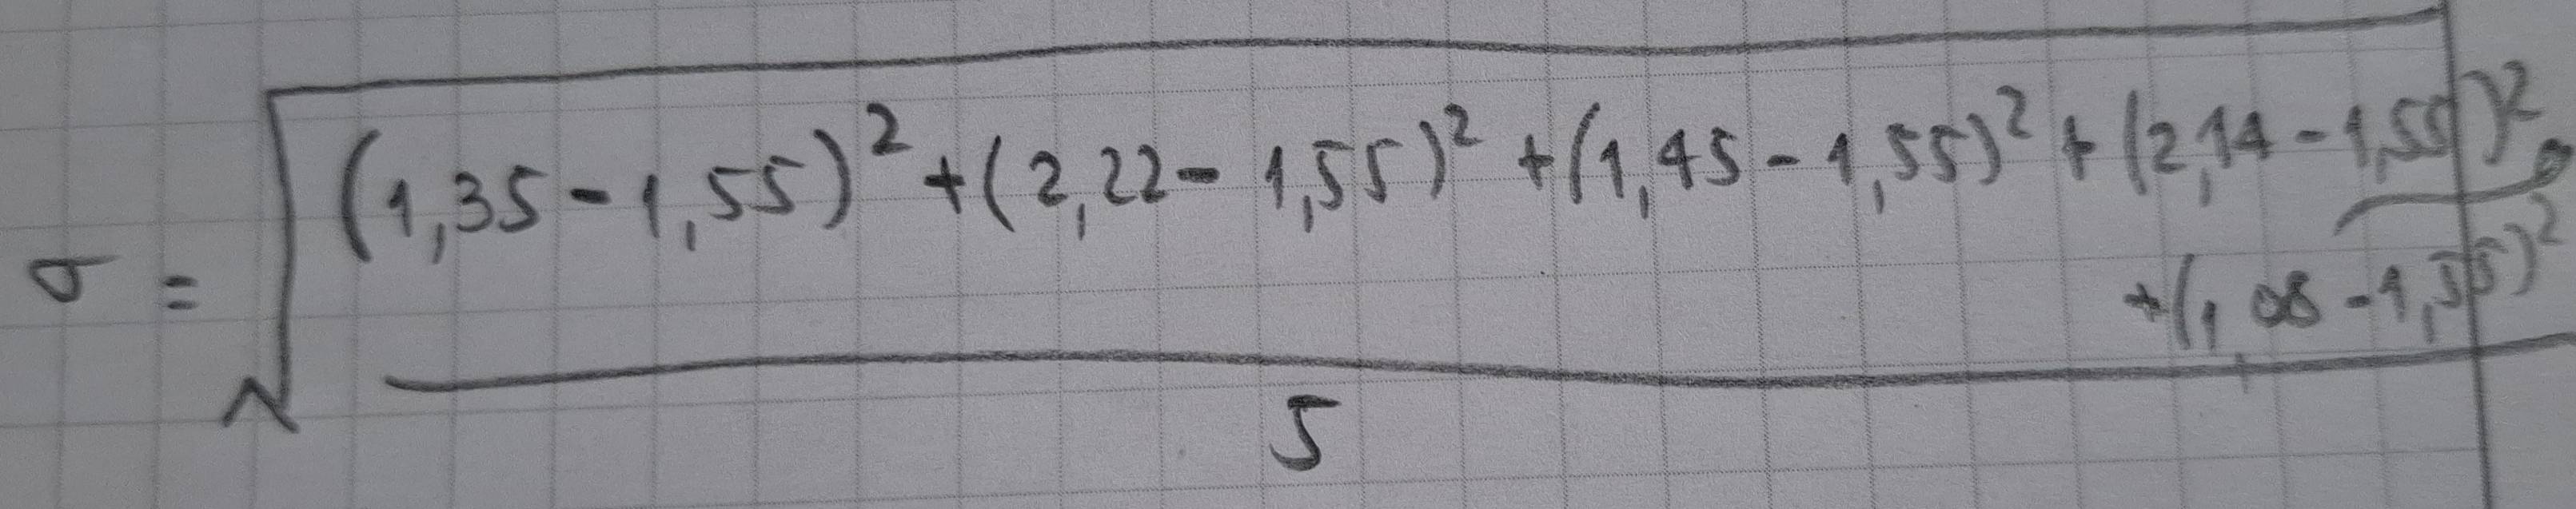 σ = √((1,35-1,55)² + (2,22-1,55)² + (1,45-1,55)² + (2,14-1,55)²
+ (1,08-1,55)²
5